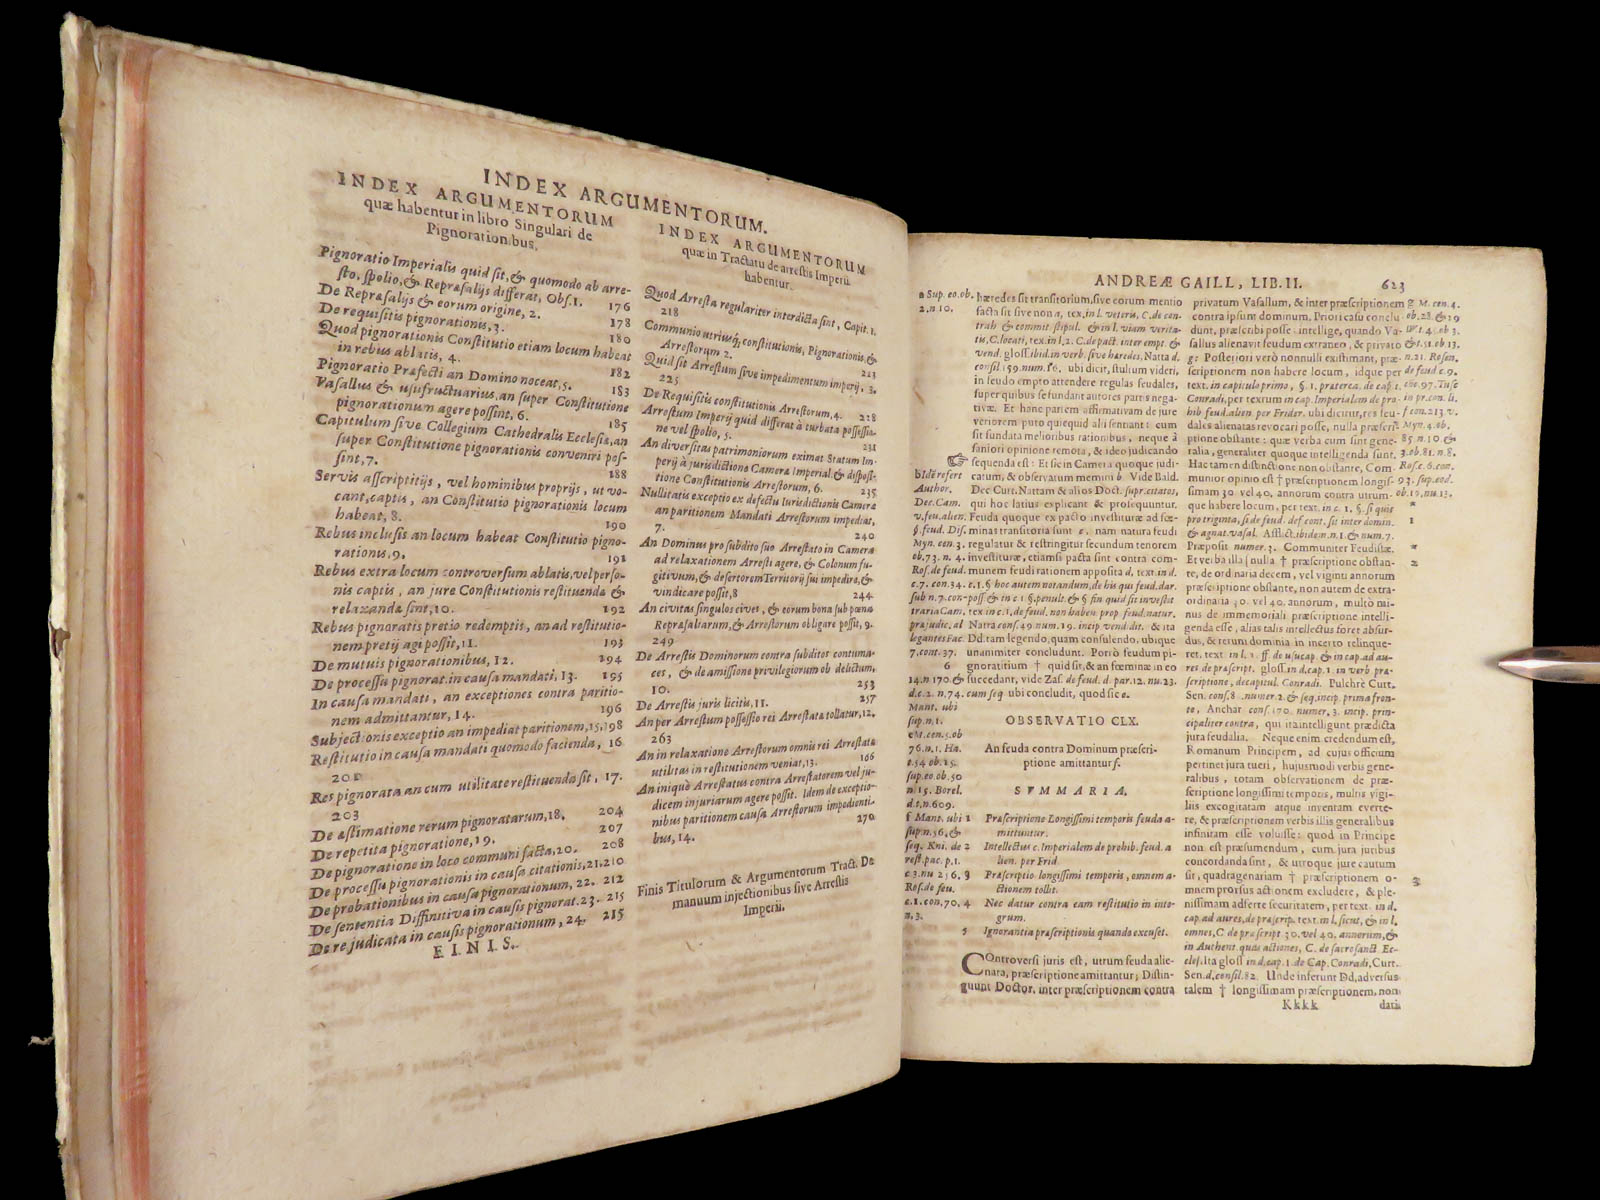 INDEX ARGUMENTORUM.
INDEX ARGUMENTORUM
quæ habentur in libro Singulari de
Pignorationibus.
Pignoratio Imperialis quid sit, & quomodo ab arre-
sto, spolio, & Repræsalijs differat, Obs. 1. 176
De Repræsalijs & eorum origine, 2. 178
De requisitis pignorationis, 3. 180
Quod pignorationis Constitutio etiam locum habeat
in rebus ablatis, 4. 182
Pignoratio Præfecti an Domino noceat, 5. 183
Vasallus & usufructuarius an super Constitutione
pignorationum agere possint, 6. 185
Capitulum sive Collegium Cathedralis Ecclesiæ, an
super Constitutione pignorationis conveniri pos-
sint, 7. 188
Servis asscriptitijs, vel hominibus proprijs, ut vo-
cant, captis, an Constitutio pignorationis locum
habeat, 8. 190
Rebus inclusis an locum habeat Constitutio pigno-
rationis, 9. 191
Rebus extra locum controversum ablatis, vel perso-
nis captis, an jure Constitutionis restituenda &
relaxanda sint, 10. 192
Rebus pignoratis pretio redemptis, an ad restitutio-
nem pretij agi possit, 11. 193
De mutuis pignorationibus, 12. 194
De processu pignorat. in causa mandati, 13. 195
In causa mandati, an exceptiones contra paritio-
nem admittantur, 14. 196
Subjectionis exceptio an impediat paritionem, 15, 198
Restitutio in causa mandati quomodo facienda, 16
201
Res pignorata an cum utilitate restituenda sit, 17.
203
De æstimatione rerum pignoratarum, 18. 204
De repetita pignoratione, 19. 207
De pignoratione in loco communi facta, 20. 208
De processu pignorationis in causa citationis, 21. 210
De probationibus in causa pignorationum, 22. 212
De sententia Diffinitiva in causis pignorat. 23. 215
De re judicata in causis pignorationum, 24. 215
FINIS.
INDEX ARGUMENTORUM
quæ in Tractatu de arrestis Imperii
habentur.
Quod Arresta regulariter interdicta sint, Capit. 1.
218
Communio utriusq; constitutionis, Pignorationis, &
Arrestorum 2. 223
Quid sit Arrestum sive impedimentum imperij, 3.
225
De Requisitis constitutionis Arrestorum, 4. 228
Arrestum Imperij quid differat à turbata possessio-
ne vel spolio, 5. 231
An diversitas patrimoniorum eximat Statum Im-
perij à jurisdictione Cameræ Imperial. & disposi-
tione Constitutionis Arrestorum, 6. 235
Nullitatis exceptio ex defectu Iurisdictionis Cameræ
an paritionem Mandati Arrestorum impediat,
7. 240
An Dominus pro subdito suo Arrestato in Camera
ad relaxationem Arresti agere, & Colonum fu-
gitivum, & desertorem Territorij sui impedire, &
vindicare possit, 8 244
An civitas singulos cives, & eorum bona sub pœna
Repræsaliarum, & Arrestorum obligare possit, 9.
249
De Arrestis Dominorum contra subditos contuma-
ces, & de amissione privilegiorum ob delictum,
10. 253
De Arrestis juris licitis, 11. 257
An per Arrestum possessio rei Arrestata tollatur, 12.
263
An in relaxatione Arrestorum omnis rei Arrestata
utilitas in restitutionem veniat, 13. 166
An iniquè Arrestatus contra Arrestatorem vel ju-
dicem injuriarum agere possit. Idem de exceptio-
nibus paritionem causa Arrestorum impedienti-
bus, 14. 270
Finis Titulorum & Argumentorum Tract. De
manuum injectionibus sive Arrestis
Imperii.
ANDREÆ GAILL, LIB. II. 623
a Sup. eo. ob.
2, n 10.
b Idē refert
Author.
Dec. Cam.
v. feu. alien.
Myn. cen. 3.
ob. 73. n. 4.
Ros. de feud.
c. 7. con. 34.
sub n. 7. con-
traria Cam.
præjudic. al
legantes Fac.
7. cont. 37.
6
14. n 170 &
d. c. 2. n. 74.
Mant. ubi
sup. n. 1.
e M. cen. 5. ob
76. n. 1. Ha.
e. 54 ob. 25.
sup. eo. ob. 50
n 15. Borel.
d. t. n. 609.
f Mant. ubi
sup. n. 56, &
seq. Kni. de
rest. pac. p. 1.
c. 3. nu 216.
Ros. de feu.
c. 1. con. 70.
n. 3.
hæredes sit transitorium, sive eorum mentio
facta sit sive non a, tex. in l. veteris, C. de con-
trah & commit stipul. & in l. viam verita-
tis, C. locati, tex. in l. 2. C. de pact. inter empt. &
vend. gloss. ibid. in verb. sive hæredes. Natta d.
consil. 159. num. 16. ubi dicit, stultum videri,
in feudo empto attendere regulas feudales,
super quibus se fundant autores partis nega-
tivæ. Et hanc partem affirmativam de jure
veriorem puto quicquid alii sentiant: cum
sit fundata melioribus rationibus, neque à
saniori opinione remota, & ideo judicando
sequenda est: Et sic in Camera quoque judi-
catum, & observatum memini b. Vide Bald.
Dec Curt. Nattam & alios Doct. supr. citatos,
qui hoc latius explicant & prosequuntur.
Feuda quoque ex pacto investituræ ad fœ-
minas transitoria sunt c, nam natura feudi
regulatur & restringitur secundum tenorem
investituræ, etiamsi pacta sint contra com-
munem feudi rationem apposita d, text. in d.
c. 1. § hoc autem notandum, de his qui feud. dar.
poss & in c 1 § penult. & § fin quid sit investit
tex in c. 1, de feud. non haben prop. feud. natur.
Natta cons. 49 num. 19. incip vendidit. & ita
Dd. tam legendo, quam consulendo, ubique
unanimiter concludunt. Porrò feudum pi-
gnoratitium † quid sit, & an fœminæ in eo
succedant, vide Zas. de feud. d. par. 12. nu. 23.
cum seq ubi concludit, quod sic e.
OBSERVATIO CLX.
An feuda contra Dominum præscri-
ptione amittantur f.
SUMMARIA.
1 Præscriptione Longissimi temporis feuda a-
mittuntur.
2 Intellectus c. Imperialem de prohib. feud. a
lien. per Frid.
3 Præscriptio longissimi temporis, omnem a-
ctionem tollit.
4 Nec datur contra eam restitutio in inte-
grum.
5 Ignorantia præscriptionis quando excuset.
COntroversi juris est, utrum feuda alie-
nata, præscriptione amittantur; Distin-
guunt Doctor. inter præscriptionem contra
privatum Vasallum, & inter præscriptionem
contra ipsum dominum. Priori casu conclu-
dunt, præscribi posse, intellige, quando Va-
sallus alienavit feudum extraneo, & privato
g: Posteriori verò nonnulli existimant, præ-
scriptionem non habere locum, idque per
text. in capitulo primo, §. 1. præterea. de cap. 1
Conradi, per textum in cap. Imperialem de pro-
hib feud. alien per Frider. ubi dicitur, res feu-
dales alienatas revocari posse, nulla præscri-
ptione obstante: quæ verba cum sint gene-
ralia, generaliter quoque intelligenda sunt.
Hac tamen distinctione non obstante, Com-
munior opinio est † præscriptione longis-
simam 30 vel 40. annorum contra utrum-
que habere locum, per text. in c. 1. §. si quis
pro triginta, si de feud. def cont. sit inter domin.
& agnat. vasal. Afflict. ibidem. n. 1 & num. 7.
Præposit numer. 3. Communiter Feudistæ.
Et verba illa [nulla † præscriptione obstan-
te, de ordinaria decem, vel viginti annorum
præscriptione obstante, non autem de extra-
ordinaria 30. vel 40. annorum, multò mi-
nus de immemoriali præscriptione intelli-
genda esse, alias talis intellectus foret absur-
dus, & rerum dominia in incerto relinque-
ret. text. in l. 1. ff. de usucap. & in cap. ad au-
res de præscript. gloss. in d. cap. 1. in verb præ-
scriptione, de capitul. Conradi. Pulchrè Curt.
Sen. cons. 8 . numer. 2. & seq. incip. prima fron-
te, Anchar cons. 170. numer. 3. incip. prin-
cipaliter contra, qui ita intelligunt prædicta
jura feudalia. Neque enim credendum est,
Romanum Principem, ad cujus officium
pertinet jura tueri, hujusmodi verbis gene-
ralibus, totam observationem de præ-
scriptione longissimi temporis, multis vigi-
liis excogitatam atque inventam everte-
te, & præscriptionem verbis illis generalibus
infinitam esse voluisse: quod in Principe
non est præsumendum, cum jura juribus
concordanda sint, & utroque jure cautum
sit, quadragenariam † præscriptionem o-
mnem prorsus actionem excludere, & ple-
nissimam adferre securitatem, per text. in d.
cap. ad aures, de præscrip. text in l, sicut, & in l.
omnes, C de præscript 30. vel 40. annorum, &
in Authent. quas actiones, C. de sacrosanct. Ec-
cles. Ita gloss in d. cap. 1. de Cap. Conradi, Curt.
Sen. d. consil. 82. Unde inferunt Dd, adversus
talem † longissimam præscriptionem, non
Kkkk dati
g M. cen. 4.
ob. 28. & 29
W. t. 4. ob 3.
& t. 51. ob 13.
n. 21. Rosen.
de feud c. 9.
in pr. con. li.
Myn. 4. ob.
85 n. 10. &
3. ob. 81. n. 8.
Ros. c. 6. con.
93. sup. eod.
ob. 15, nu. 13.
*
1
*
2
3